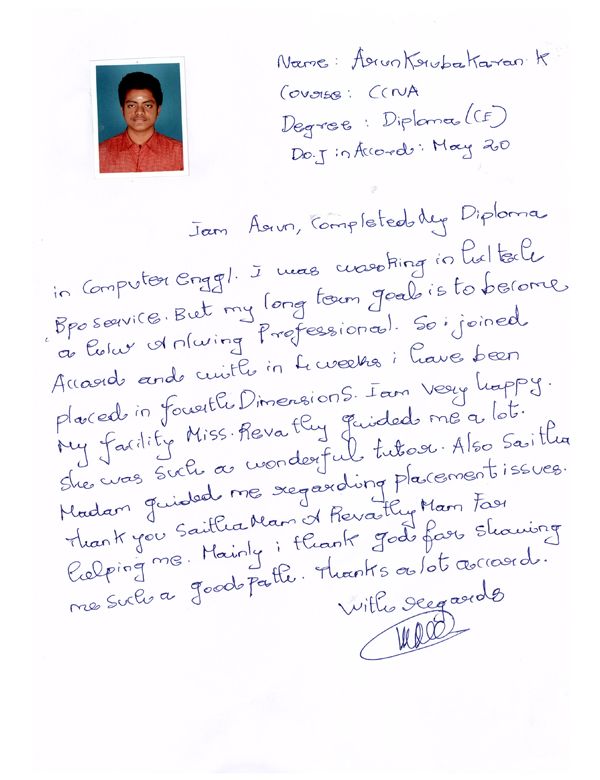 Name: ArunKrubakaran K
Course: CCNA
Degree: Diploma (CE)
Do.J in Accord: May 20
Iam Arun, Completed my Diploma
in Computer enggl. I was working in hcl tech
Bpo service. But my long term goal is to become
a &Nwing Professional. So i joined
Accord and with in 4 weeks i have been
placed in fourth Dimensions. Iam very happy.
My facility Miss. Revathy guided me a lot.
She was such a wonderful tutor. Also Saitha
Madam guided me regarding placement issues.
Thank you Saitha Mam & Revathy Mam For
helping me. Mainly i thank god for showing
me such a good path. Thanks a lot accord.
With regards